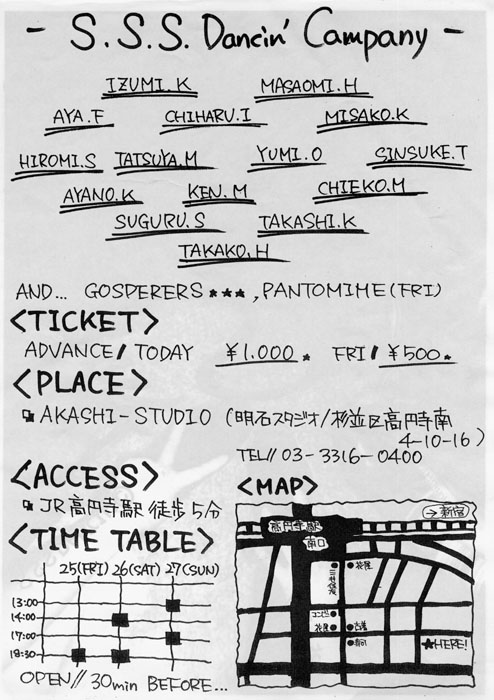 - S.S.S. Dancin' Campany -
IZUMI.K MASAOMI.H
AYA.F CHIHARU.I MISAKO.K
HIROMI.S TATSUYA.M YUMI.O SINSUKE.T
AYANO.K KEN.M CHIEKO.M
SUGURU.S TAKASHI.K
TAKAKO.H
AND... GOSPERERS ★★★, PANTOMIME(FRI)
<TICKET>
ADVANCE // TODAY ¥1.000★ FRI // ¥500★
<PLACE>
AKASHI-STUDIO (明石スタジオ/杉並区高円寺南
4-10-16)
TEL// 03-3316-0400
<ACCESS>
JR高円寺駅 徒歩5分
<TIME TABLE>
25(FRI) 26(SAT) 27(SUN)
13:00
14:00
17:00
18:30
OPEN// 30min BEFORE...
<MAP>
→新宿
高円寺駅
南口
花屋
コンビニ
花屋 古着
★HERE!